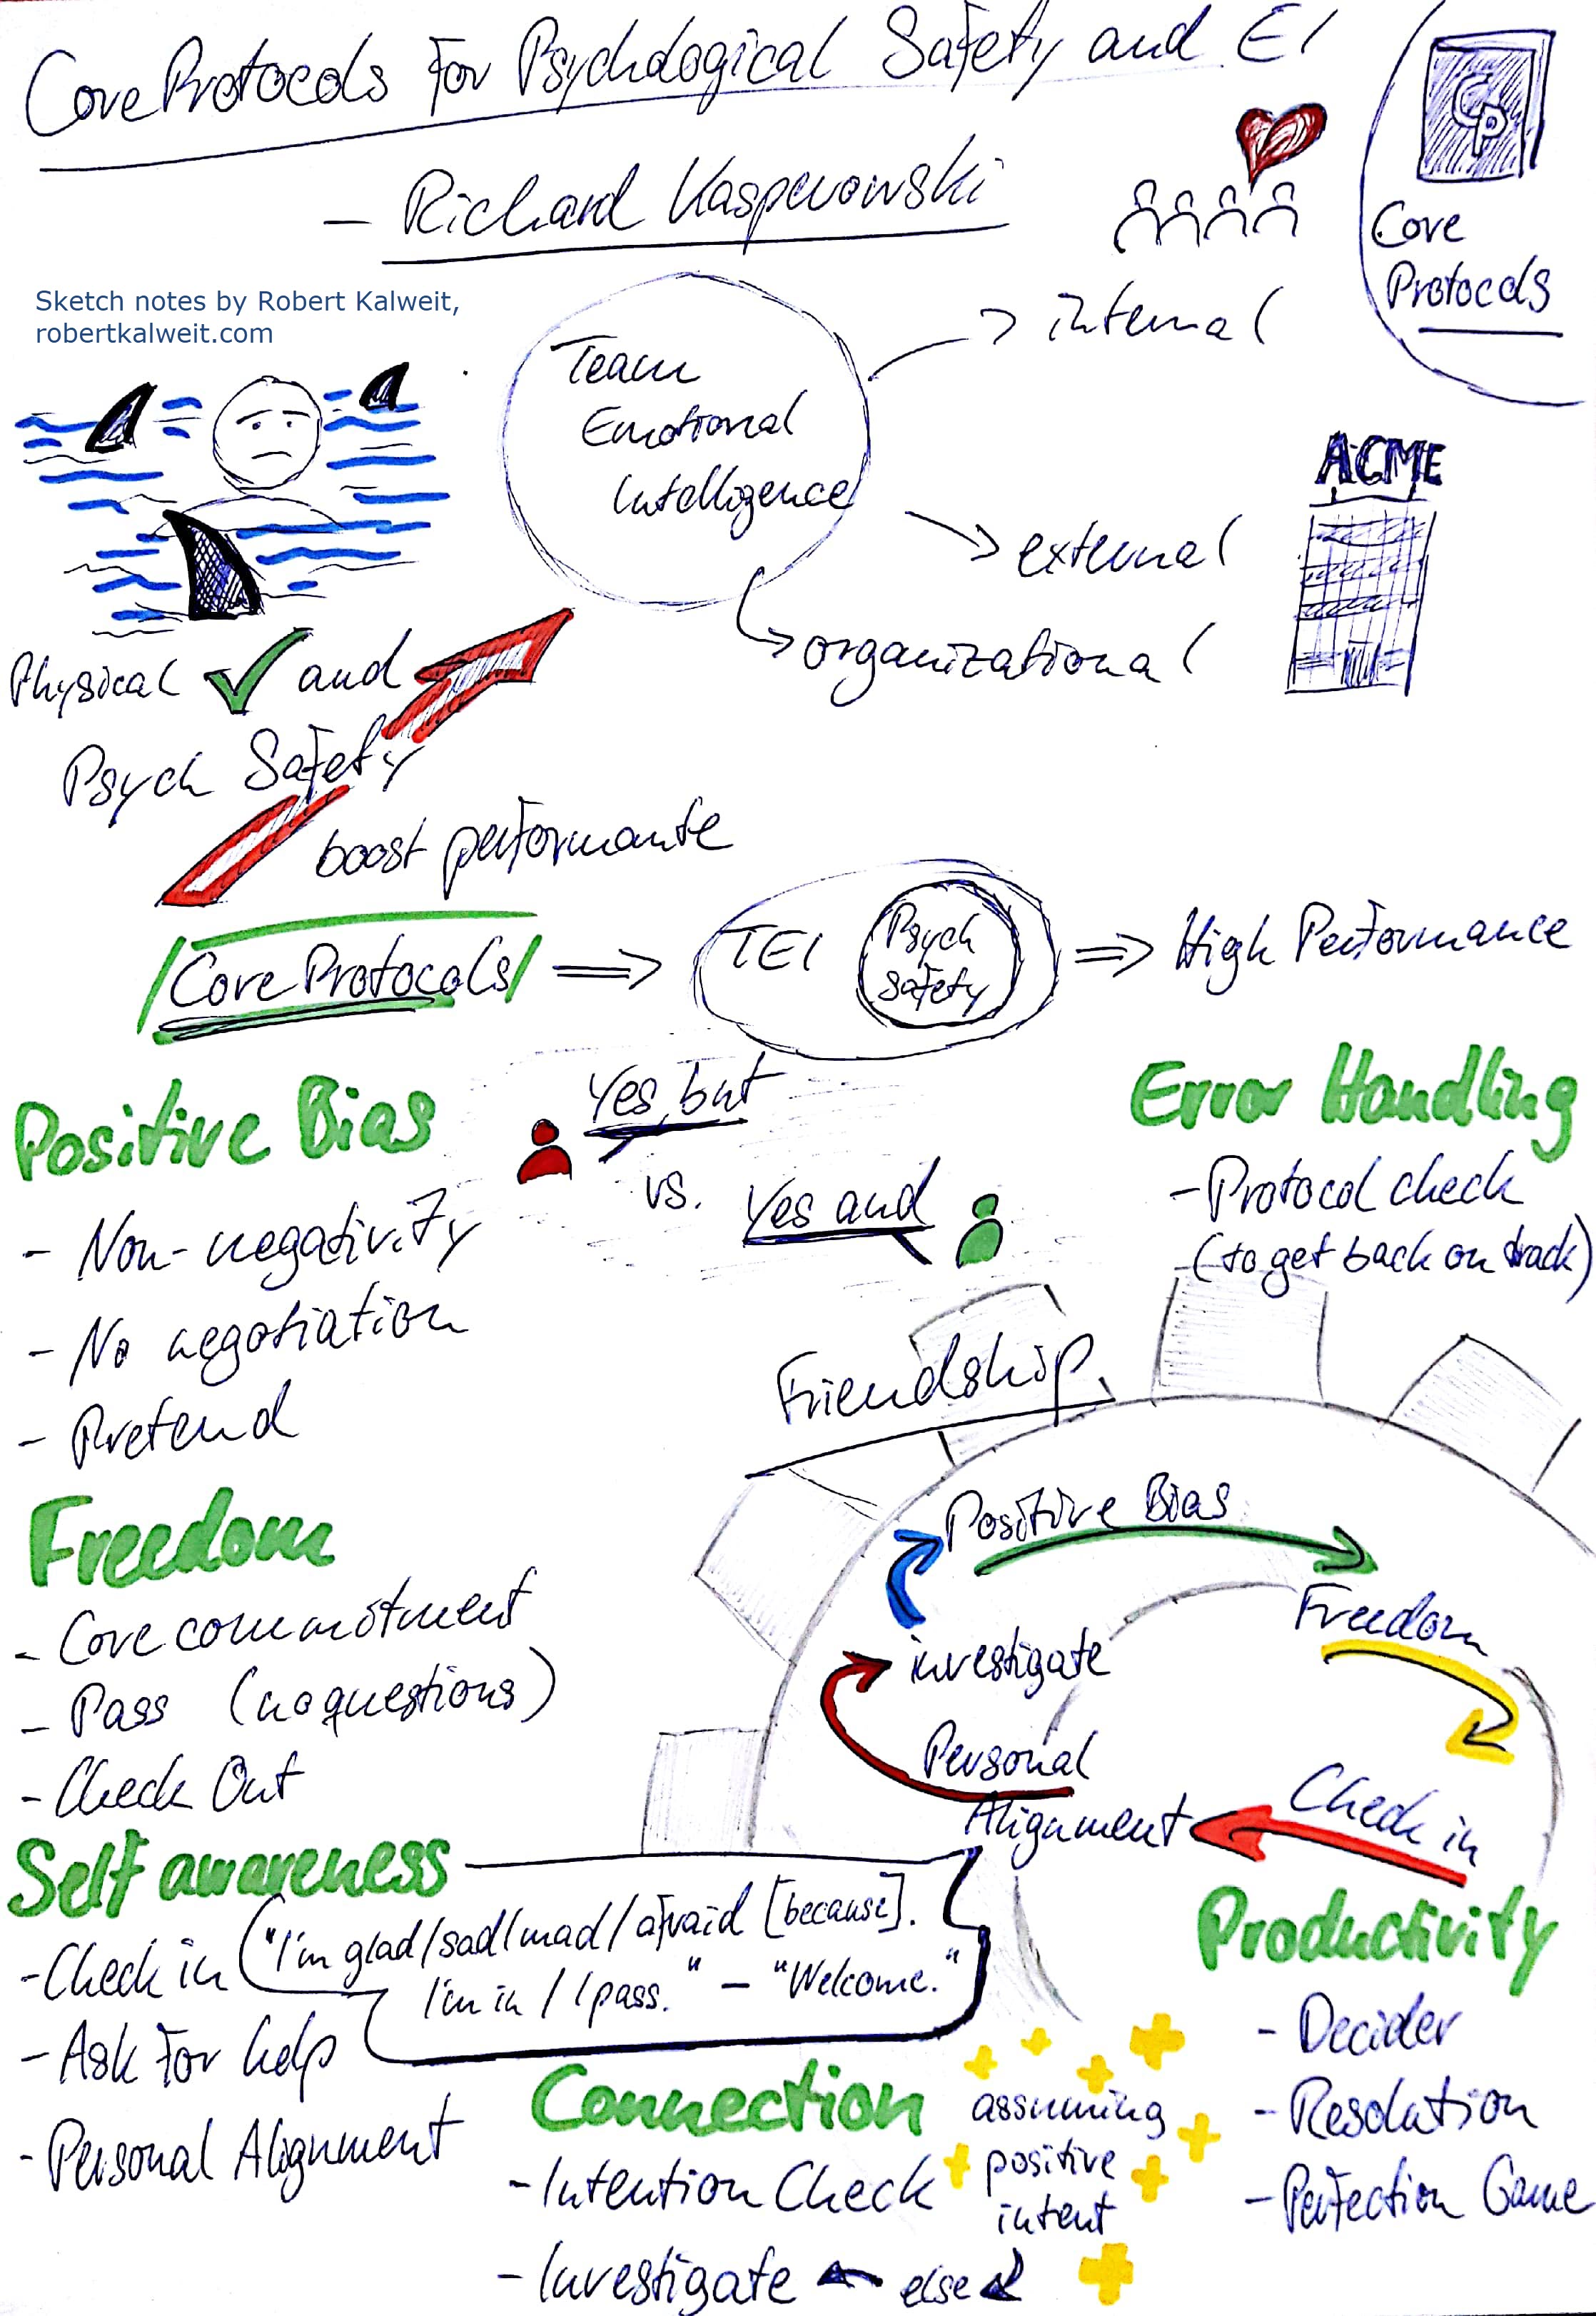 Core Protocols for Psychological Safety and EI
– Richard Kasperowski
CP
Core
Protocols
Sketch notes by Robert Kalweit,
robertkalweit.com
Team
Emotional
Intelligence
internal
external
organizational
ACME
Physical and
Psych Safety
boost performante
Core Protocols
TEI
Psych
Safety
High Performance
Positive Bias
- Non-negativity
- No negotiation
- Pretend
Yes, but
vs.
Yes and
Error Handling
- Protocol check
(to get back on track)
Friendship
Positive Bias
Freedom
Check in
Personal
Alignment
investigate
Freedom
- Core commitment
- Pass (no questions)
- Check Out
Self awareness
- Check in
"I'm glad/sad/mad/afraid [because].
I'm in / I pass." – "Welcome."
- Ask for help
- Personal Alignment
Connection
- Intention Check
- Investigate
else
assuming
positive
intent
Productivity
- Decider
- Resolution
- Perfection Game